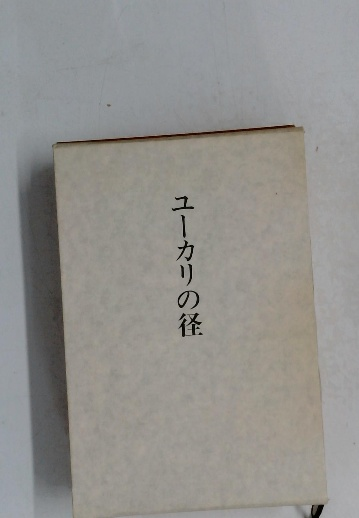 ユーカリの径